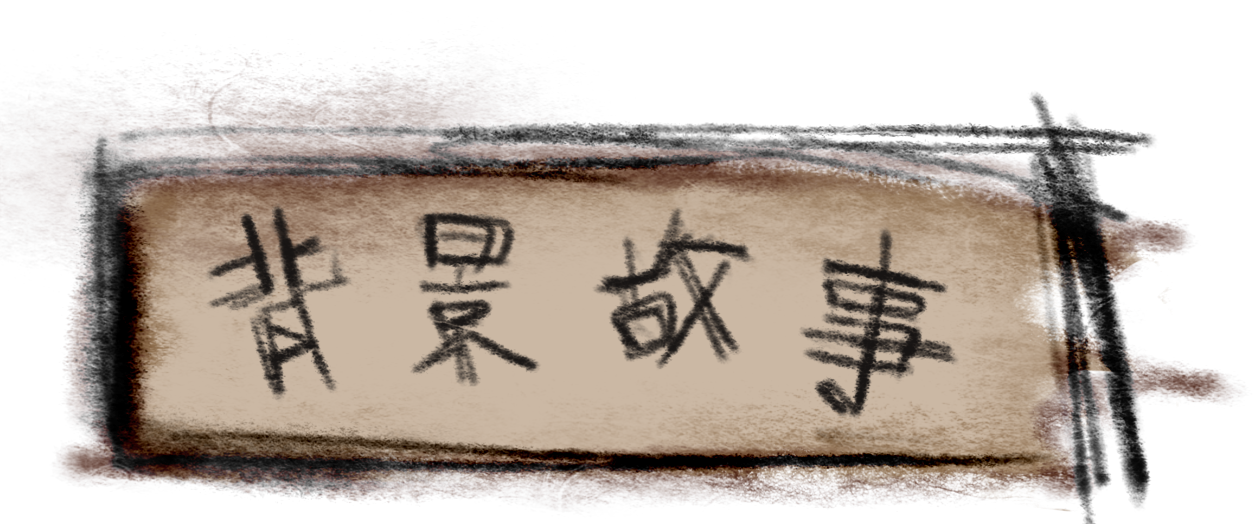 背景故事